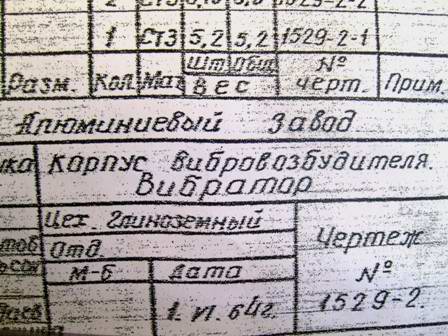 2 Ст3 1529-2-2
1 Ст3 5,2 5,2 1529-2-1
Разм. Кол. Мат Шт Общ Вес № черт. Прим.
Алюминиевый завод
Корпус вибровозбудителя.
Вибратор
Цех. Глиноземный
Отд.
М-Б Дата
1. VI. 64г.
Чертеж
№
1529-2.